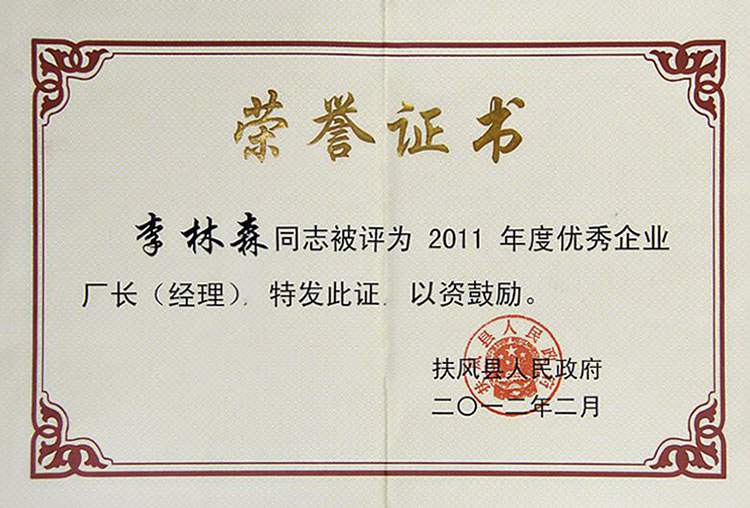 荣誉证书
李林森同志被评为 2011 年度优秀企业
厂长（经理），特发此证，以资鼓励。
扶风县人民政府
扶风县人民政府
二〇一二年二月